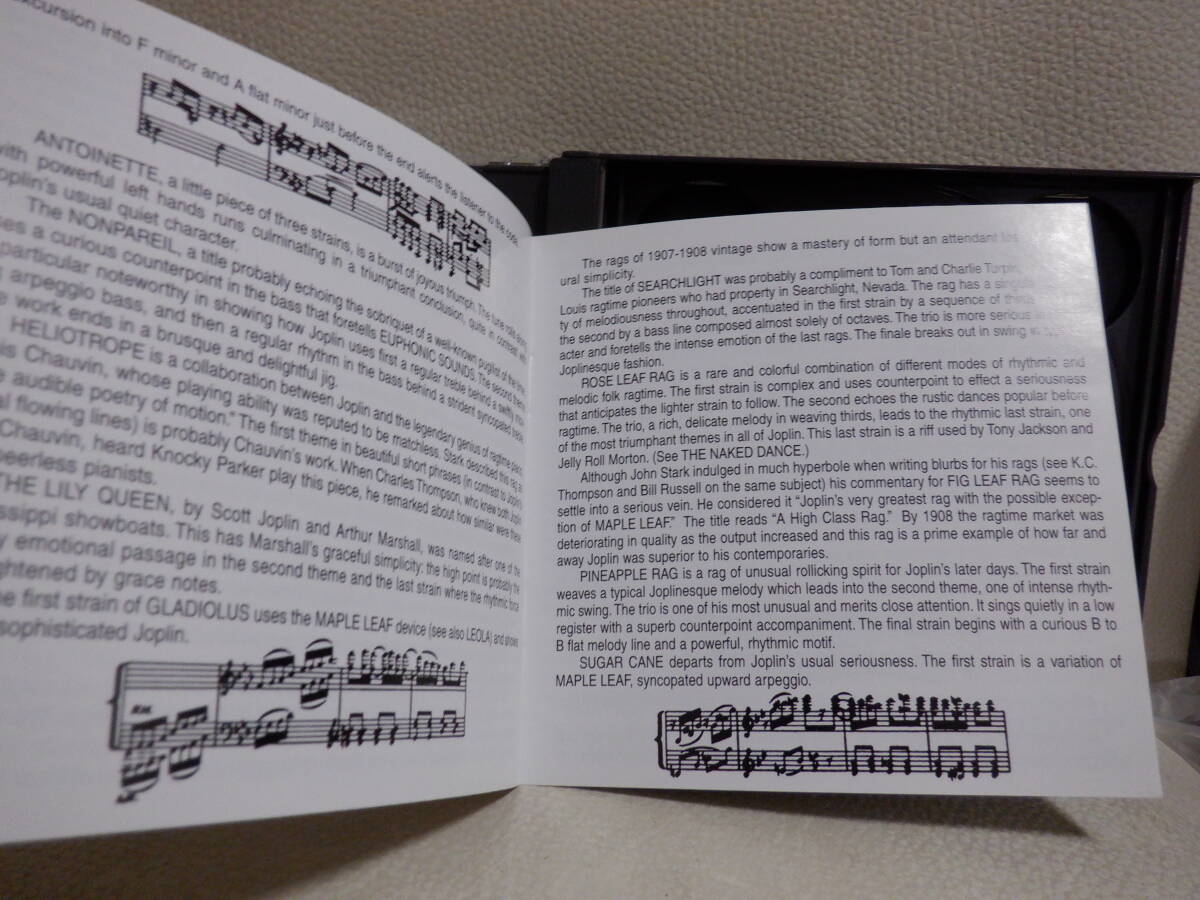 excursion into F minor and A flat minor just before the end alerts the listener to the coda.
ANTOINETTE, a little piece of three strains, is a burst of joyous triumph. The tune rolls along
with powerful left hands runs culminating in a triumphant conclusion, quite in contrast with
Joplin's usual quiet character.
The NONPAREIL, a title probably echoing the sobriquet of a well-known pugilist of the time
uses a curious counterpoint in the bass that foretells EUPHONIC SOUNDS. The second theme
particular noteworthy in showing how Joplin uses first a regular treble behind a swiftly
arpeggio bass, and then a regular rhythm in the bass behind a strident syncopated treble
work ends in a brusque and delightful jig.
HELIOTROPE is a collaboration between Joplin and the legendary genius of ragtime piano
Chauvin, whose playing ability was reputed to be matchless. Stark described this rag as
audible poetry of motion." The first theme in beautiful short phrases (in contrast to Joplin's
flowing lines) is probably Chauvin's work. When Charles Thompson, who knew both Joplin
Chauvin, heard Knocky Parker play this piece, he remarked about how similar were these
peerless pianists.
THE LILY QUEEN, by Scott Joplin and Arthur Marshall, was named after one of the
showboats. This has Marshall's graceful simplicity: the high point is probably the
emotional passage in the second theme and the last strain where the rhythmic force
by grace notes.
first strain of GLADIOLUS uses the MAPLE LEAF device (see also LEOLA) and shows
sophisticated Joplin.
The rags of 1907-1908 vintage show a mastery of form but an attendant
ural simplicity.
The title of SEARCHLIGHT was probably a compliment to Tom and Charlie Turpin,
Louis ragtime pioneers who had property in Searchlight, Nevada. The rag has a
ty of melodiousness throughout, accentuated in the first strain by a sequence of thirds
the second by a bass line composed almost solely of octaves. The trio is more serious
acter and foretells the intense emotion of the last rags. The finale breaks out in swing in
Joplinesque fashion.
ROSE LEAF RAG is a rare and colorful combination of different modes of rhythmic and
melodic folk ragtime. The first strain is complex and uses counterpoint to effect a seriousness
that anticipates the lighter strain to follow. The second echoes the rustic dances popular before
ragtime. The trio, a rich, delicate melody in weaving thirds, leads to the rhythmic last strain, one
of the most triumphant themes in all of Joplin. This last strain is a riff used by Tony Jackson and
Jelly Roll Morton. (See THE NAKED DANCE.)
Although John Stark indulged in much hyperbole when writing blurbs for his rags (see K.C.
Thompson and Bill Russell on the same subject) his commentary for FIG LEAF RAG seems to
settle into a serious vein. He considered it "Joplin's very greatest rag with the possible excep-
tion of MAPLE LEAF." The title reads "A High Class Rag." By 1908 the ragtime market was
deteriorating in quality as the output increased and this rag is a prime example of how far and
away Joplin was superior to his contemporaries.
PINEAPPLE RAG is a rag of unusual rollicking spirit for Joplin's later days. The first strain
weaves a typical Joplinesque melody which leads into the second theme, one of intense rhyth-
mic swing. The trio is one of his most unusual and merits close attention. It sings quietly in a low
register with a superb counterpoint accompaniment. The final strain begins with a curious B to
B flat melody line and a powerful, rhythmic motif.
SUGAR CANE departs from Joplin's usual seriousness. The first strain is a variation of
MAPLE LEAF, syncopated upward arpeggio.